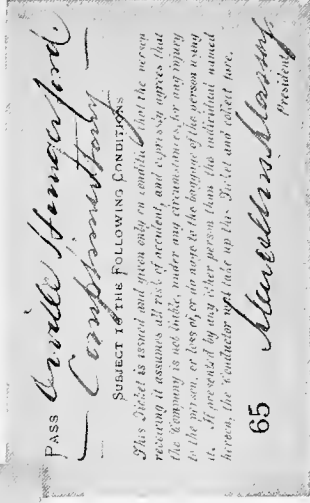 PASS Orville Hungerford
Complimentary
SUBJECT TO THE FOLLOWING CONDITIONS
This Ticket is issued and given only on condition that the person
receiving it assumes all risk of accident, and expressly agrees that
the Company is not liable, under any circumstances, for any injury
to the person, or loss of, or damage to the baggage of the person using
it. If presented by any other person than the individual named
hereon, the Conductor will take up this Ticket and collect fare.
65
President